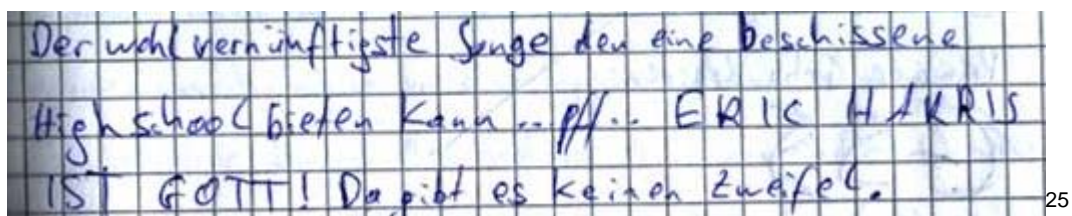 Der wohl vernünftigste Junge den eine beschissene
Highschool bieten kann .. pff .. ERIC HARRIS
IST GOTT! Da gibt es keinen Zweifel.
25